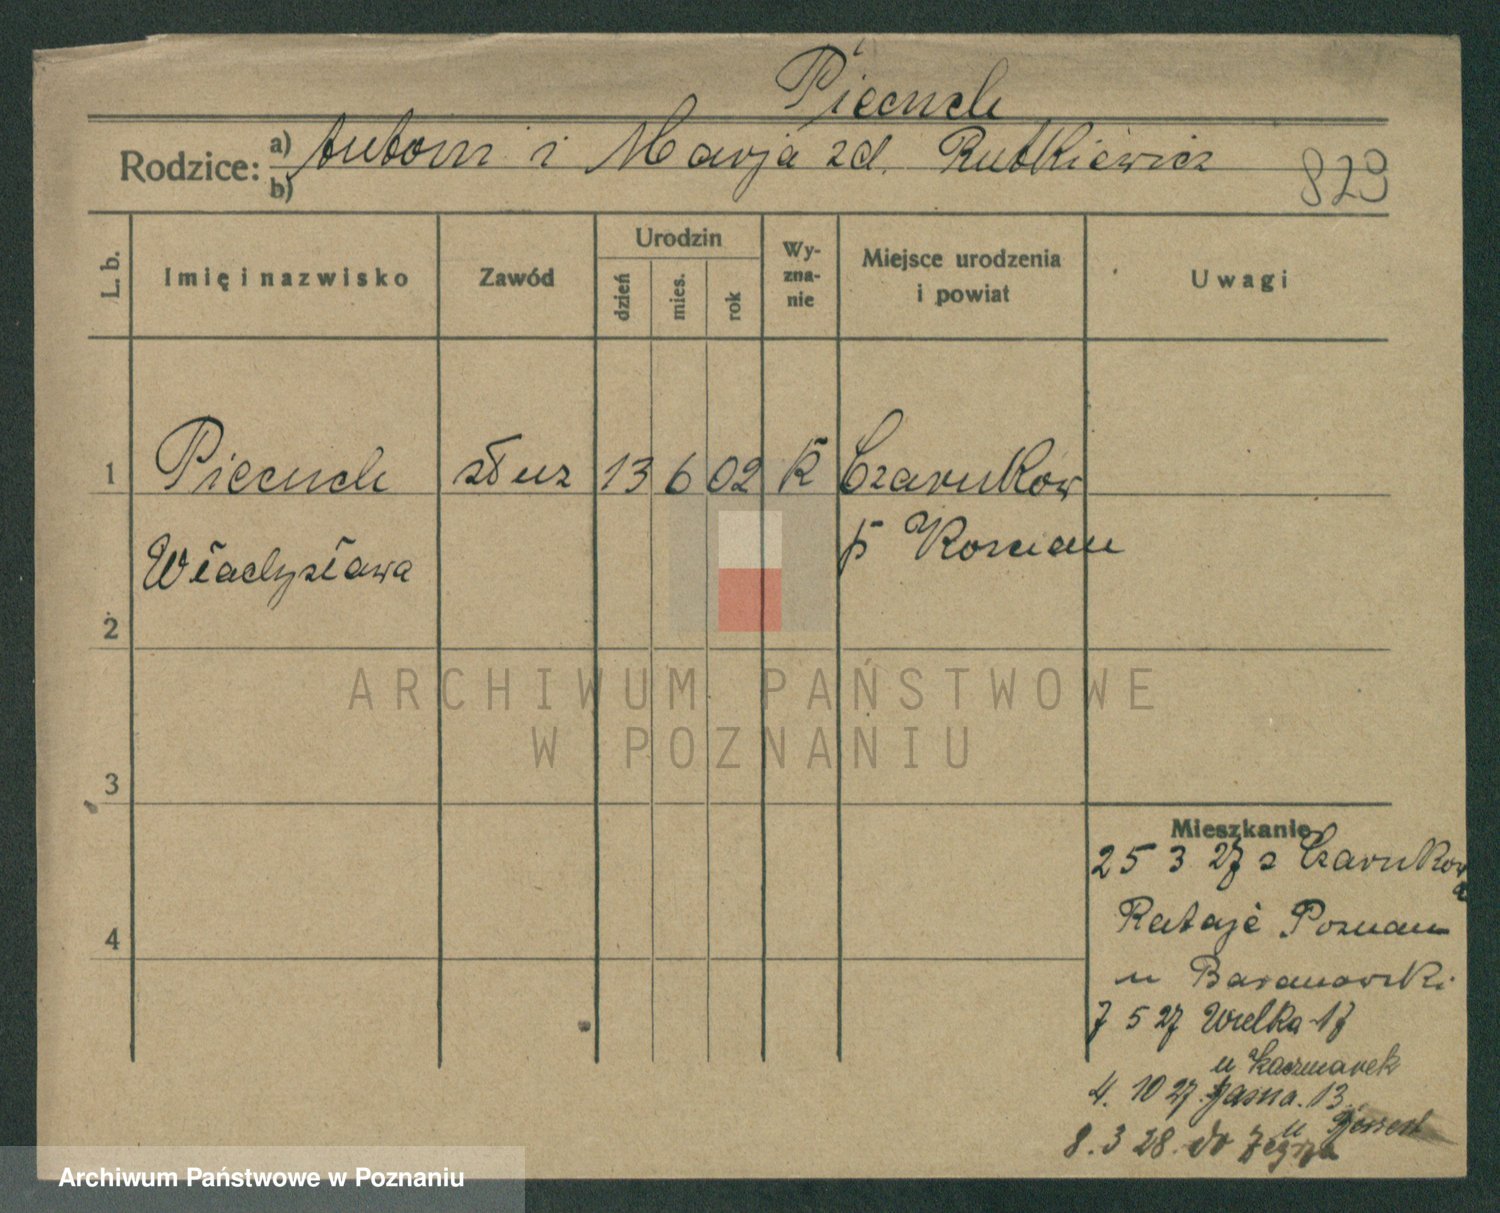 Piecuch
Rodzice: a) Antoni i Marja zd. Rutkiewicz
b)
829
L. b.
Imię i nazwisko
Zawód
Urodzin
dzień
mies.
rok
Wy-
zna-
nie
Miejsce urodzenia
i powiat
Uwagi
1 Piecuch służ 13 6 02 k Czarnków
Władysława p Kościan
2
3
4
Mieszkanie
25 3 27 z Czarnkowa
Rataje Poznań
u Baranowski
7 5 27 Wielka 17
u Kaczmarek
4. 10 27. Jasna. 13.
u
8. 3 28. do Zegrza
ARCHIWUM PAŃSTWOWE
W POZNANIU
Archiwum Państwowe w Poznaniu